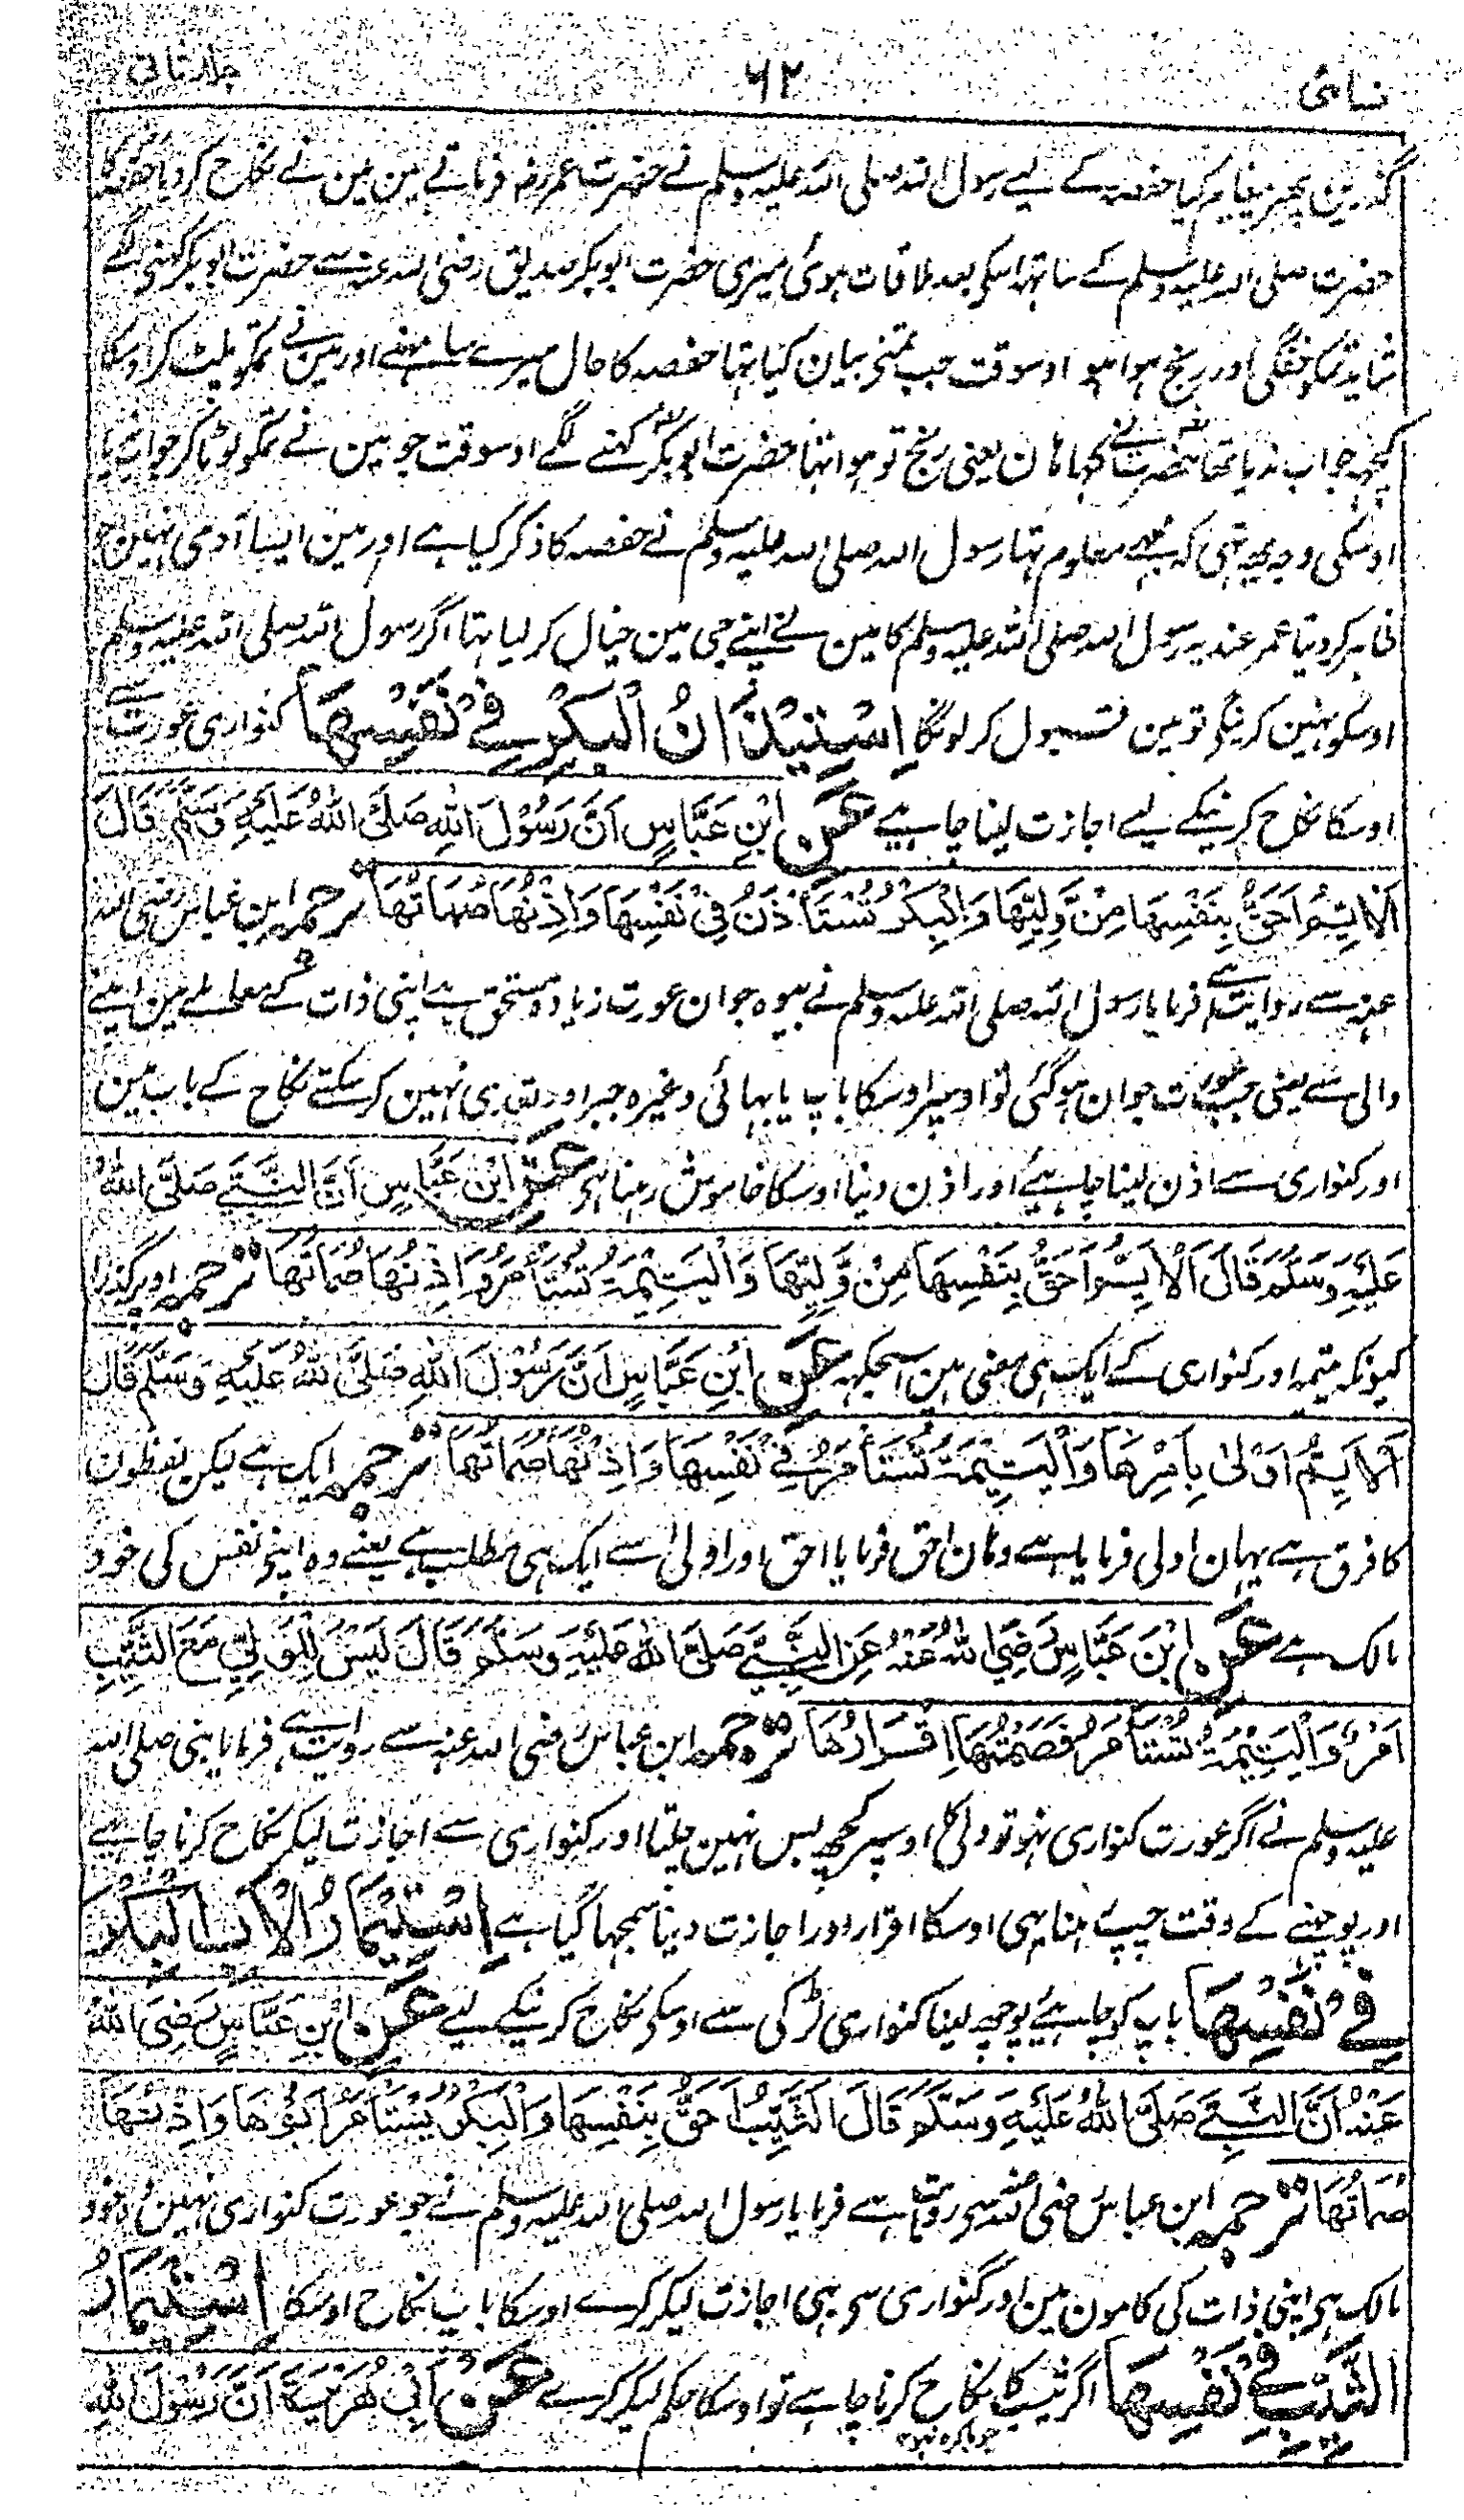 نسائی ٦٢ جلد ثانی
گذرین پھر پیغام کیا حفصہ کے لیے رسول اللہ صلی اللہ علیہ وسلم نے حضرت عمرؓ فرماتے ہین مین نے نکاح کردیا حفصہ کا
حضرت صلی اللہ علیہ وسلم کے ساتھ اسکی بعد ملاقات ہوئی میری حضرت ابوبکر صدیق رضی اللہ عنہ سے حضرت ابوبکر کہنی لگے
شاید تمکو خفگی اور رنج ہوا ہو اوسوقت جب تمنی بیان کیا تہا حفصہ کا حال میرے سامہنے اور مین نے تمکو پلیٹ کر اوسکا
کچھہ جواب ندیا تھا حضرت عمر نے کہا ہان یعنی رنج تو ہوا تہا حضرت ابوبکرؓ کہنے لگے اوسوقت جو مین نے تمکو لوٹا کر جواب ندیا
اوسکی وجہ یہ تہی کہ مجھے معلوم تہا رسول اللہ صلی اللہ علیہ وسلم نے حفصہ کا ذکر کیا ہے اور مین ایسا آدمی نہین جو
ظاہر کردیتا عمر عندیہ رسول اللہ صلی اللہ علیہ وسلم کا مین نے اپنے جی مین خیال کرلیا تہا اگر رسول اللہ صلی اللہ علیہ وسلم
اوسکو نہین کرینگے تو مین قبول کرلونگا اِسْتِيْذَانُ الْبِكْرِ فِيْ نَفْسِهَا کنواری عورت سے
اوسکا نکاح کرنیکے لیے اجازت لینا چاہیے عَنِ ابْنِ عَبَّاسٍ اَنَّ رَسُوْلَ اللهِ صَلَّى اللهُ عَلَيْهِ وَسَلَّمَ قَالَ
اَلْاَيِّمُ اَحَقُّ بِنَفْسِهَا مِنْ وَّلِيِّهَا وَالْبِكْرُ تُسْتَأْذَنُ فِيْ نَفْسِهَا وَاِذْنُهَا صُمَاتُهَا ترجمہ ابن عباس رضی اللہ
عنہ سے روایت ہے فرمایا رسول اللہ صلی اللہ علیہ وسلم نے بیوہ جوان عورت زیادہ مستحق ہے اپنی ذات کے معاملے مین اپنے
والی سے یعنی جب عورت جوان ہوگئی تو اوسپر اوسکا باپ یا بہائی وغیرہ جبر اور تعدی نہین کرسکتے نکاح کے باب مین
اور کنواری سے اذن لینا چاہیے اور اذن دینا اوسکا خاموش رہنا ہی عَنِ ابْنِ عَبَّاسٍ اَنَّ النَّبِيَّ صَلَّى اللهُ
عَلَيْهِ وَسَلَّمَ قَالَ اَلْاَيِّمُ اَحَقُّ بِنَفْسِهَا مِنْ وَّلِيِّهَا وَالْيَتِيْمَةُ تُسْتَأْمَرُ وَاِذْنُهَا صُمَاتُهَا ترجمہ اوپر گذرا
کیونکہ یتیمہ اور کنواری کے ایک ہی معنی ہین اسجگہہ عَنِ ابْنِ عَبَّاسٍ اَنَّ رَسُوْلَ اللهِ صَلَّى اللهُ عَلَيْهِ وَسَلَّمَ قَالَ
اَلْاَيِّمُ اَوْلٰى بِاَمْرِهَا وَالْيَتِيْمَةُ تُسْتَأْمَرُ فِيْ نَفْسِهَا وَاِذْنُهَا صُمَاتُهَا ترجمہ ایک ہے لیکن لفظون
کا فرق ہے یہان اولی فرمایا ہے وہان احق فرمایا احق اور اولی سے ایک ہی مطلب ہے یعنے وہ اپنی نفس کی خود
مالک ہے عَنِ ابْنِ عَبَّاسٍ رَضِيَ اللهُ عَنْهُ عَنِ النَّبِيِّ صَلَّى اللهُ عَلَيْهِ وَسَلَّمَ قَالَ لَيْسَ لِلْوَلِيِّ مَعَ الثَّيِّبِ
اَمْرٌ وَالْيَتِيْمَةُ تُسْتَأْمَرُ فَصَمْتُهَا اِقْرَارُهَا ترجمہ ابن عباس رضی اللہ عنہ سے روایت ہے فرمایا نبی صلی اللہ
علیہ وسلم نے اگر عورت کنواری نہو تو ولی کا اوسپر کچھہ بس نہین چلتا اور کنواری سے اجازت لیکر نکاح کرنا چاہیے
اور پوچہنے کے وقت چپ رہنا ہی اوسکا اقرار اور اجازت دینا سمجہا گیا ہے اِسْتِيْمَارُ الْاَبِ الْبِكْرَ
فِيْ نَفْسِهَا باپ کو چاہیے پوچہہ لینا کنواری لڑکی سے اوسکو نکاح کرنیکے لیے عَنِ ابْنِ عَبَّاسٍ رَضِيَ اللهُ
عَنْهُ اَنَّ النَّبِيَّ صَلَّى اللهُ عَلَيْهِ وَسَلَّمَ قَالَ الثَّيِّبُ اَحَقُّ بِنَفْسِهَا وَالْبِكْرُ يَسْتَأْمِرُ اَبُوْهَا وَاِذْنُهَا
صُمَاتُهَا ترجمہ ابن عباس رضی اللہ عنہ سی روایت ہے فرمایا رسول اللہ صلی اللہ علیہ وسلم نے جو عورت کنواری نہین وہ خود
مالک ہی اپنی ذات کی کامون مین اور کنواری سی بہی اجازت لیکر کرے اوسکا باپ نکاح اوسکا اِسْتِيْمَارُ
الثَّيِّبِ فِيْ نَفْسِهَا اگر ثیب کا نکاح کرنا چاہے تو اوسکا حکم لیکر کرے عَنْ اَبِيْ هُرَيْرَةَ اَنَّ رَسُوْلَ اللهِ
جو باکرہ نہو